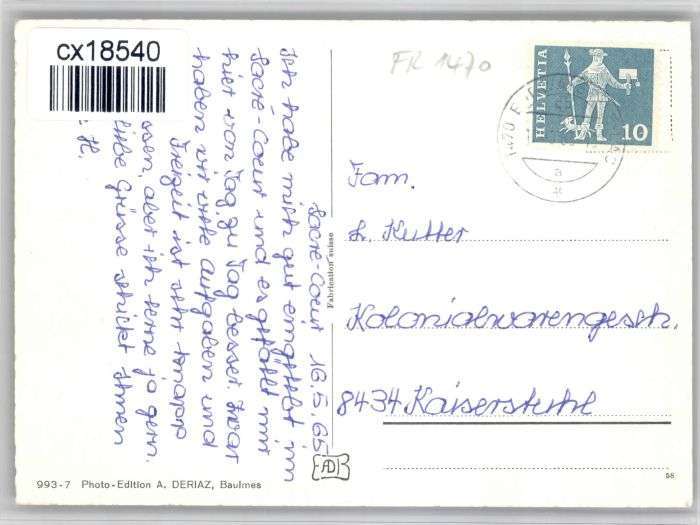 cx18540
FR 1470
HELVETIA
10
1470
Sacré-Coeur 16.5.65
Ich habe mich gut eingelebt im
Sacré-Coeur und es gefällt mir
hier von Tag zu Tag besser. Zwar
haben wir viele Aufgaben und
Freizeit ist sehr knapp
ssen, aber ich lerne ja gern.
liebe Grüsse schickt Ihnen
H.
Fabrication suisse
Fam.
L. Kutter
Kolonialwarengesch.
8434 Kaiserstuhl
ADB
993-7 Photo-Edition A. DERIAZ, Baulmes